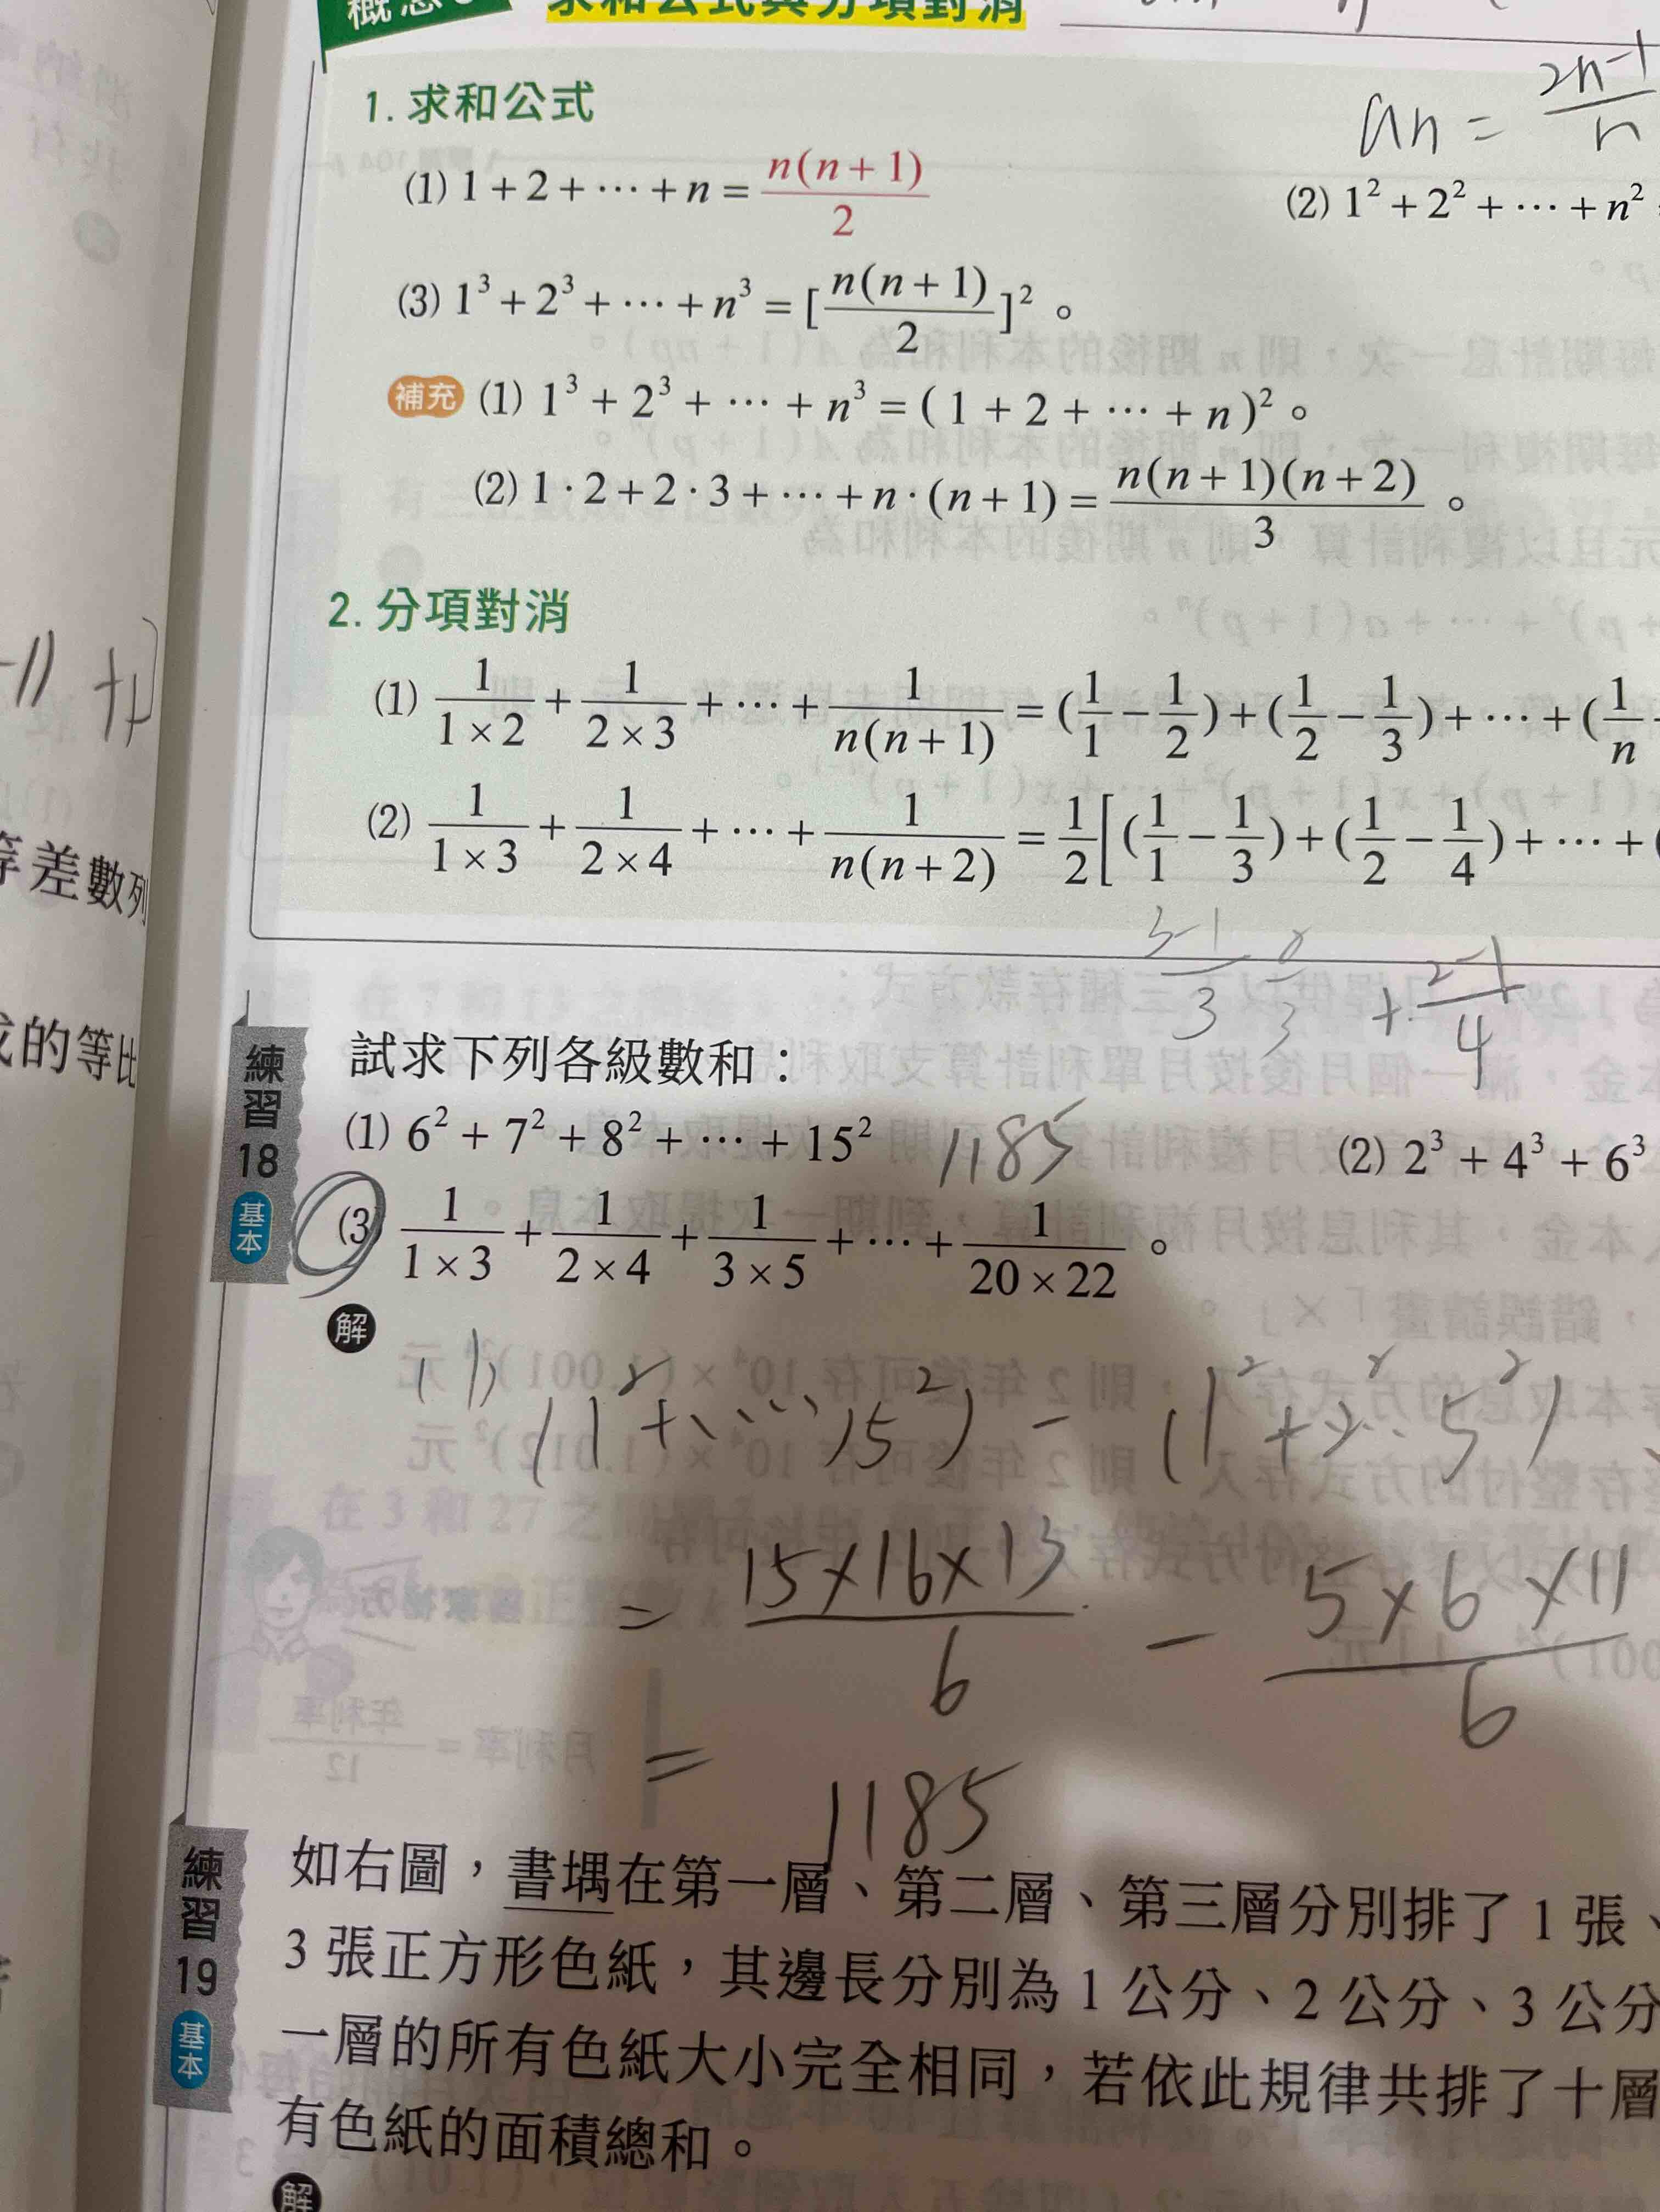 求和公式與分項對消
an = \frac{2n-1}{n}
1. 求和公式
(1) 1 + 2 + ⋯ + n = \frac{n(n+1)}{2}
(2) 1² + 2² + ⋯ + n²
(3) 1³ + 2³ + ⋯ + n³ = [\frac{n(n+1)}{2}]² 。
補充 (1) 1³ + 2³ + ⋯ + n³ = ( 1 + 2 + ⋯ + n )² 。
(2) 1 · 2 + 2 · 3 + ⋯ + n · (n+1) = \frac{n(n+1)(n+2)}{3} 。
2. 分項對消
(1) \frac{1}{1×2} + \frac{1}{2×3} + ⋯ + \frac{1}{n(n+1)} = (\frac{1}{1} − \frac{1}{2}) + (\frac{1}{2} − \frac{1}{3}) + ⋯ + (\frac{1}{n}
(2) \frac{1}{1×3} + \frac{1}{2×4} + ⋯ + \frac{1}{n(n+2)} = \frac{1}{2}[(\frac{1}{1} − \frac{1}{3}) + (\frac{1}{2} − \frac{1}{4}) + ⋯ + (
\frac{3-1}{3} + \frac{2-1}{4}
等差數列
的等比
練習18 基本
試求下列各級數和：
(1) 6² + 7² + 8² + ⋯ + 15² 1185
(2) 2³ + 4³ + 6³
(3) \frac{1}{1×3} + \frac{1}{2×4} + \frac{1}{3×5} + ⋯ + \frac{1}{20×22} 。
解
(1) (1² + ⋯ 15²) − (1² + 2² ⋯ 5²)
= \frac{15×16×13}{6} − \frac{5×6×11}{6}
= 1185
練習19 基本
如右圖，書堣在第一層、第二層、第三層分別排了 1 張、
3 張正方形色紙，其邊長分別為 1 公分、2 公分、3 公分
一層的所有色紙大小完全相同，若依此規律共排了十層
有色紙的面積總和。
解